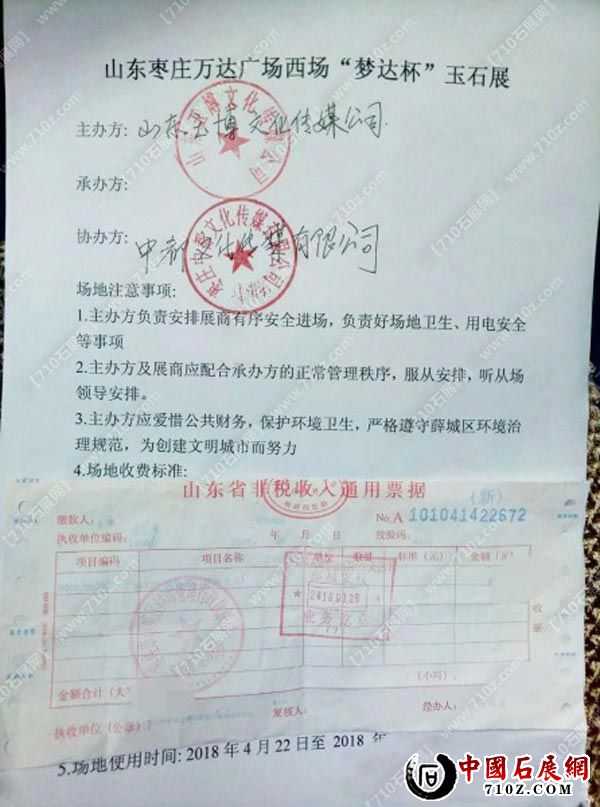 山东枣庄万达广场西场“梦达杯”玉石展
主办方：山东玉博文化传媒公司
承办方：
协办方：中都文化传媒有限公司
场地注意事项：
1.主办方负责安排展商有序安全进场，负责好场地卫生、用电安全
等事项
2.主办方及展商应配合承办方的正常管理秩序，服从安排，听从场
领导安排。
3.主办方应爱惜公共财务，保护环境卫生，严格遵守薛城区环境治
理规范，为创建文明城市而努力
4.场地收费标准：
山东省非税收入通用票据
（新）
缴款人：
No.A 101041422672
执收单位编码： 年 月 日 校验码：
项目编码 项目名称 单位 数量 标准（元） 金额（元）
业务讫章
收据
金额合计（大 （小写）：
执收单位（公章）： 复核人： 经办人：
5.场地使用时间：2018 年 4 月 22 日至 2018 年
中國石展網
710z.com